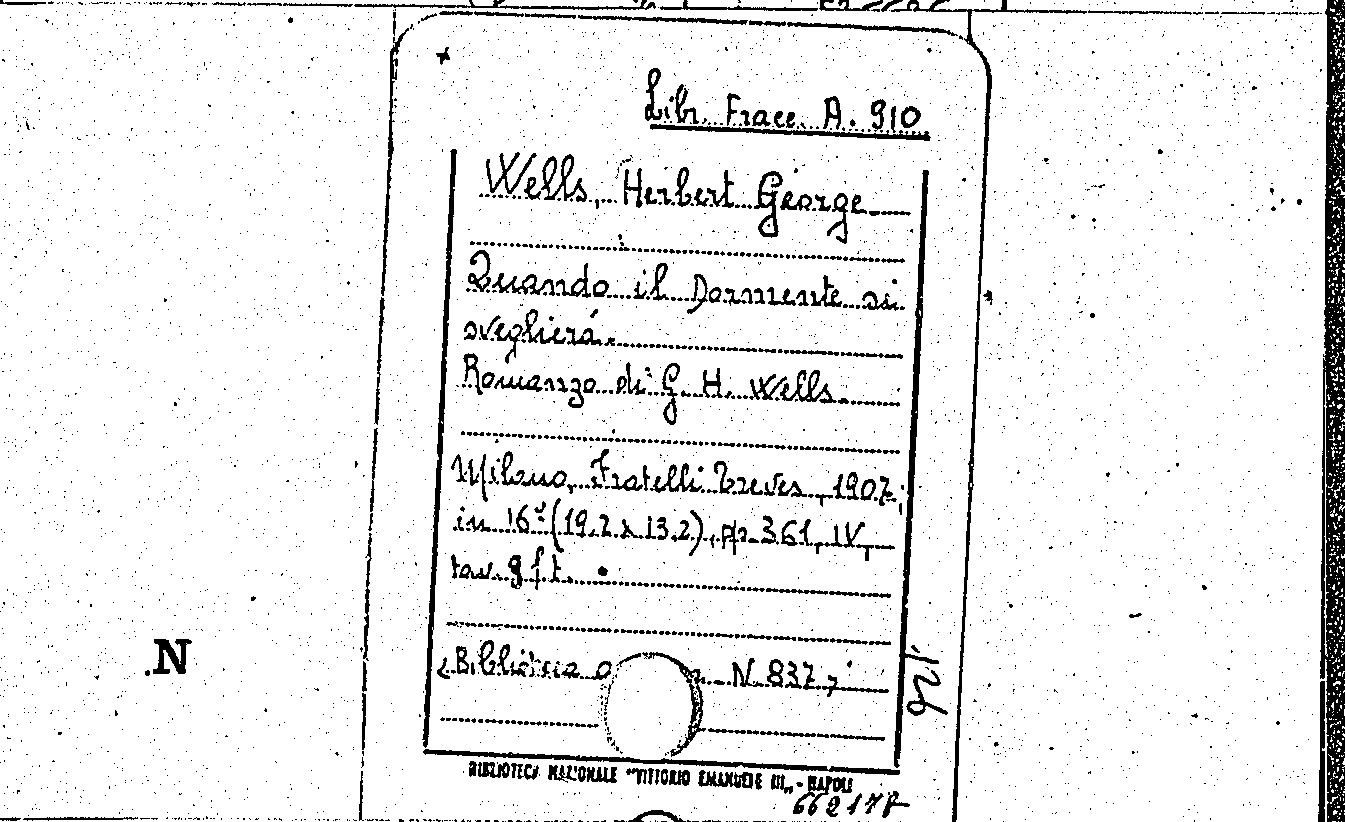 Libr. Fracc. A. 910
Wells, Herbert George
Quando il Dormente si
sveglierá.
Romanzo di G. H. Wells.
Milano, Fratelli Treves, 1907,
in 16º (19.2 x 13.2), pp. 361, IV,
tav. 9 f. t.
N
Biblioteca N. 837
BIBLIOTECA NAZIONALE "VITTORIO EMANUELE III„ - NAPOLI